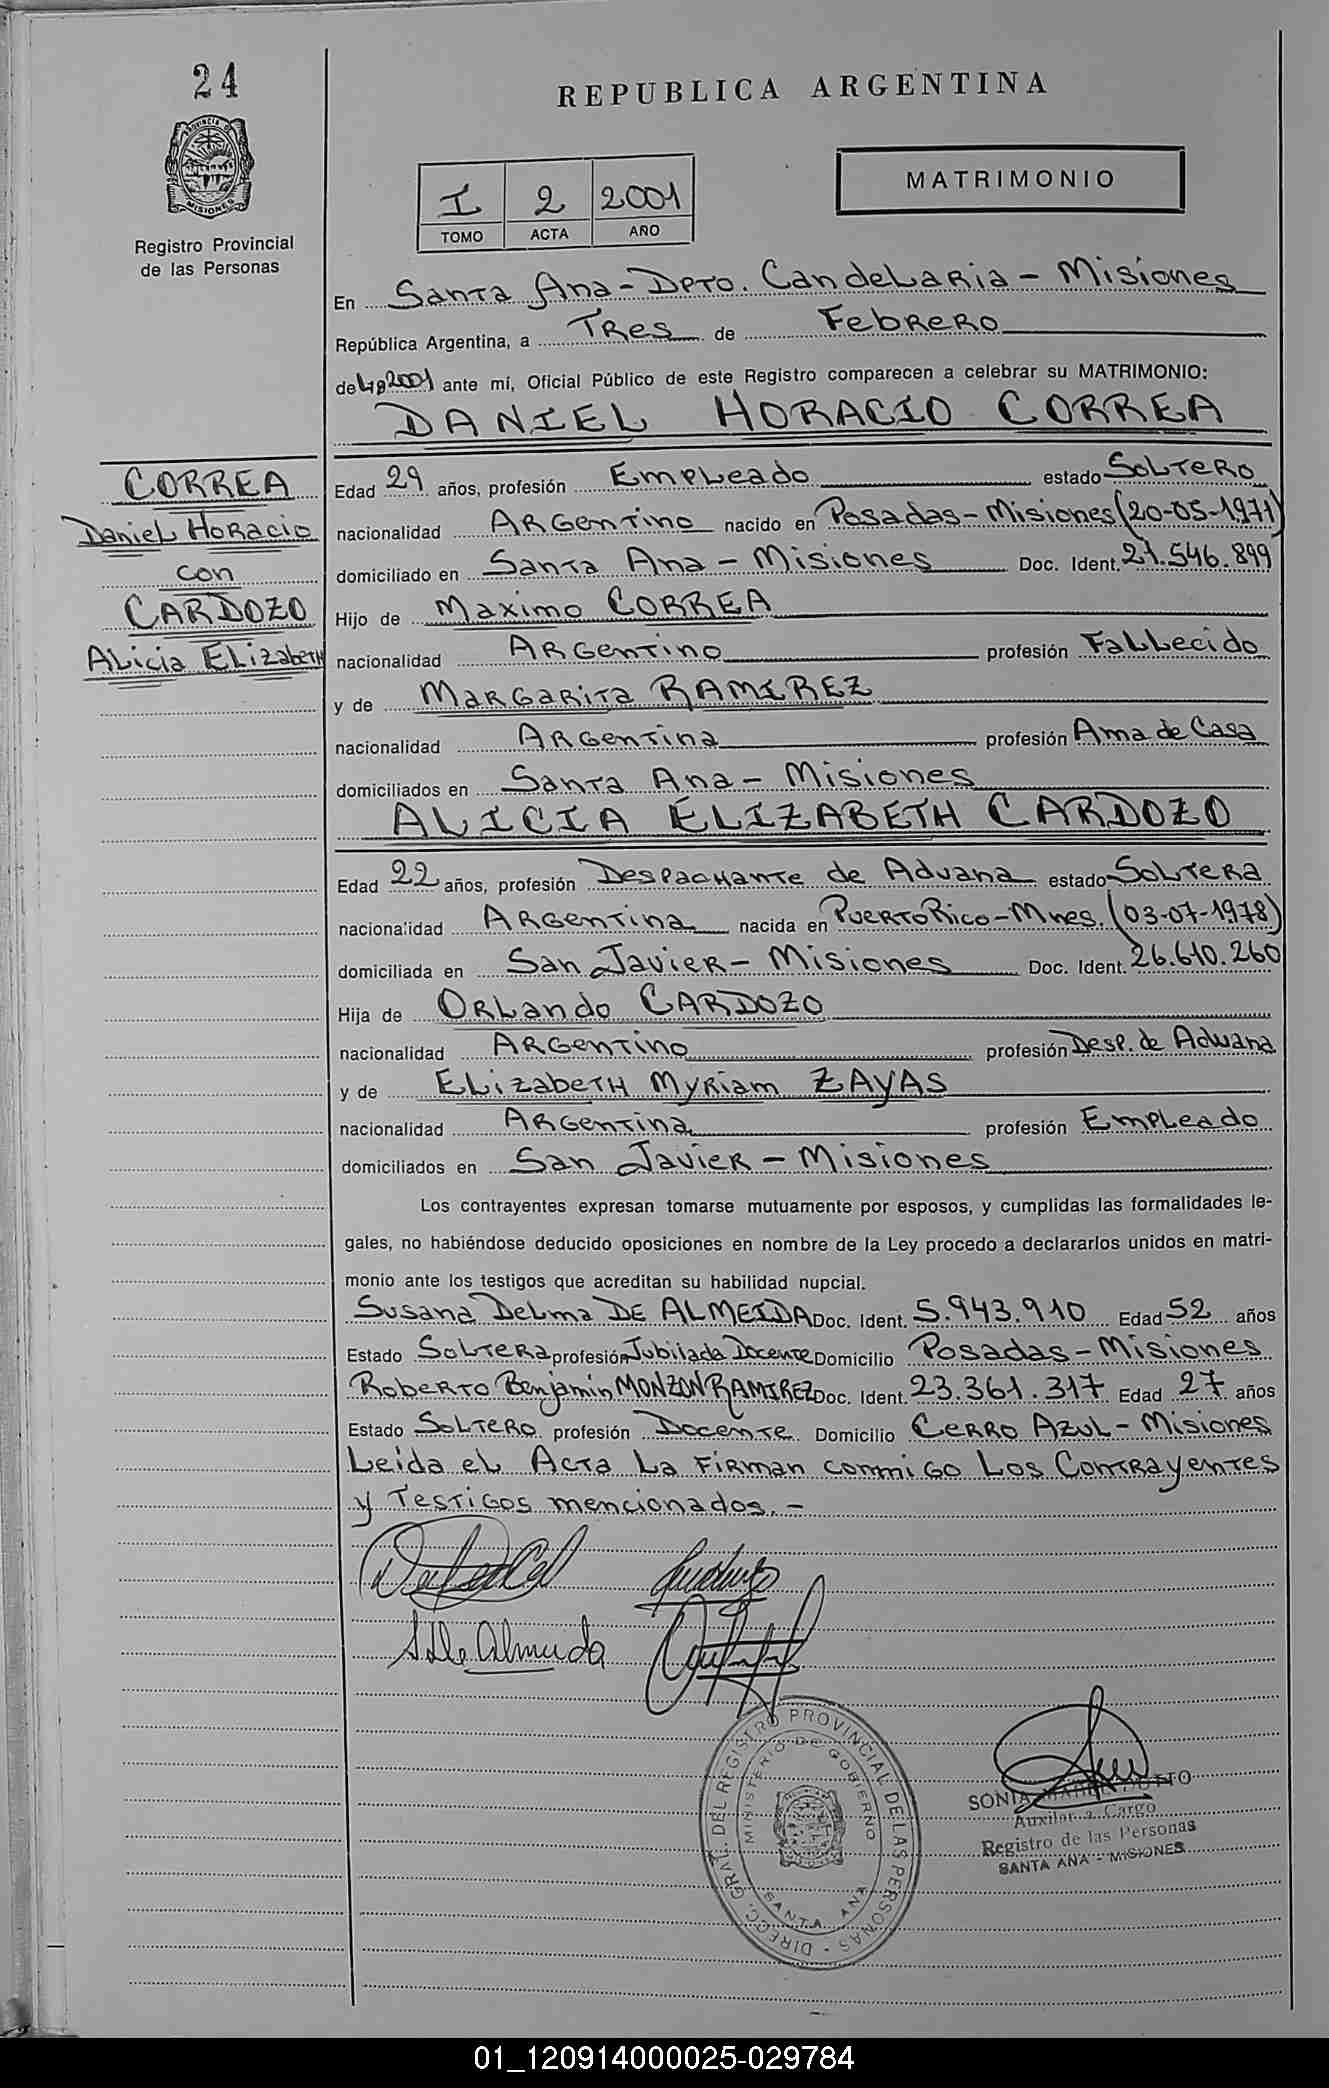 24
REPUBLICA ARGENTINA
PROVINCIA D
MISIONES
Registro Provincial
de las Personas
I 2 2001
TOMO ACTA AÑO
MATRIMONIO
En Santa Ana - Dpto. Candelaria - Misiones
República Argentina, a Tres de Febrero
de 2001 ante mí, Oficial Público de este Registro comparecen a celebrar su MATRIMONIO:
DANIEL HORACIO CORREA
CORREA
Daniel Horacio
con
CARDOZO
Alicia Elizabeth
Edad 29 años, profesión Empleado estado Soltero
nacionalidad Argentino nacido en Posadas - Misiones (20-05-1971)
domiciliado en Santa Ana - Misiones Doc. Ident. 21.546.899
Hijo de Maximo CORREA
nacionalidad Argentino profesión Fallecido
y de Margarita RAMIREZ
nacionalidad Argentina profesión Ama de Casa
domiciliados en Santa Ana - Misiones
ALICIA ELIZABETH CARDOZO
Edad 22 años, profesión Despachante de Aduana estado Soltera
nacionalidad Argentina nacida en Puerto Rico - Mnes. (03-07-1978)
domiciliada en San Javier - Misiones Doc. Ident. 26.610.260
Hija de Orlando CARDOZO
nacionalidad Argentino profesión Desp. de Aduana
y de Elizabeth Myriam ZAYAS
nacionalidad Argentina profesión Empleado
domiciliados en San Javier - Misiones
Los contrayentes expresan tomarse mutuamente por esposos, y cumplidas las formalidades le-
gales, no habiéndose deducido oposiciones en nombre de la Ley procedo a declararlos unidos en matri-
monio ante los testigos que acreditan su habilidad nupcial.
Susana Delma DE ALMEIDA Doc. Ident. 5.943.910 Edad 52 años
Estado Soltera profesión Jubilada Docente Domicilio Posadas - Misiones
Roberto Benjamin MONZON RAMIREZ Doc. Ident. 23.361.317 Edad 27 años
Estado Soltero profesión Docente Domicilio Cerro Azul - Misiones
Leida el Acta La Firman conmigo Los Contrayentes
y Testigos mencionados. -
DIRECC. GRAL. DEL REGISTRO PROVINCIAL DE LAS PERSONAS -
MINISTERIO DE GOBIERNO
SANTA ANA
SONIA
Auxiliar a Cargo
Registro de las Personas
SANTA ANA - MISIONES
01_120914000025-029784